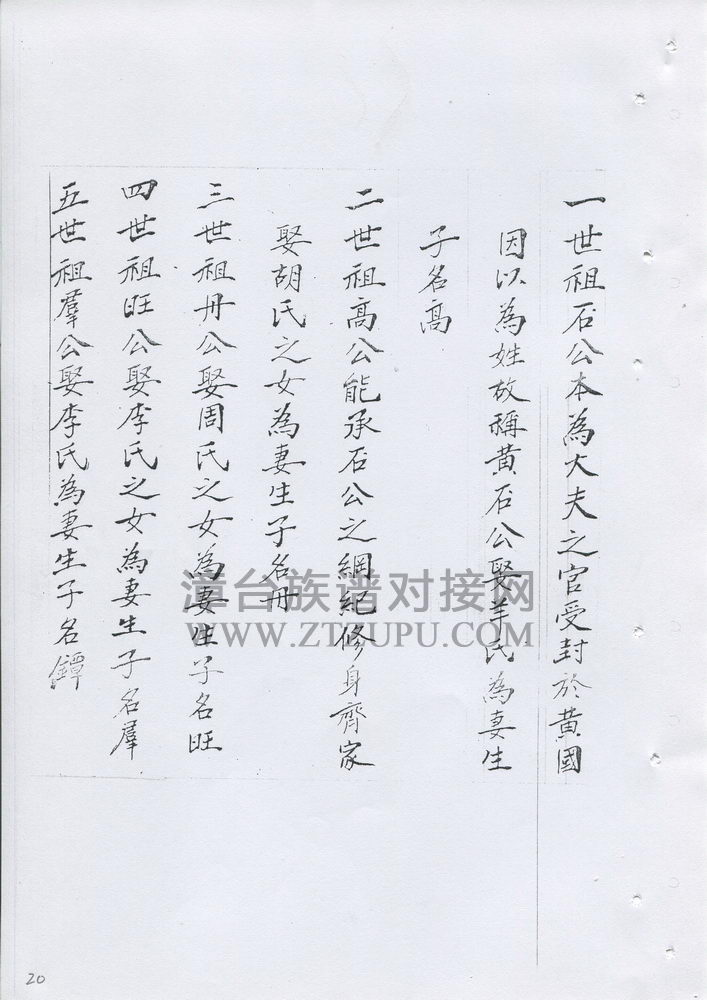 一世祖石公本為大夫之官受封於黃國
因以為姓故稱黃石公娶羊氏為妻生
子名高
二世祖高公能承石公之綱紀修身齊家
娶胡氏之女為妻生子名冊
三世祖冊公娶周氏之女為妻生子名旺
四世祖旺公娶李氏之女為妻生子名羣
五世祖羣公娶李氏為妻生子名鐔
漳台族谱对接网
WWW.ZTZUPU.COM
20